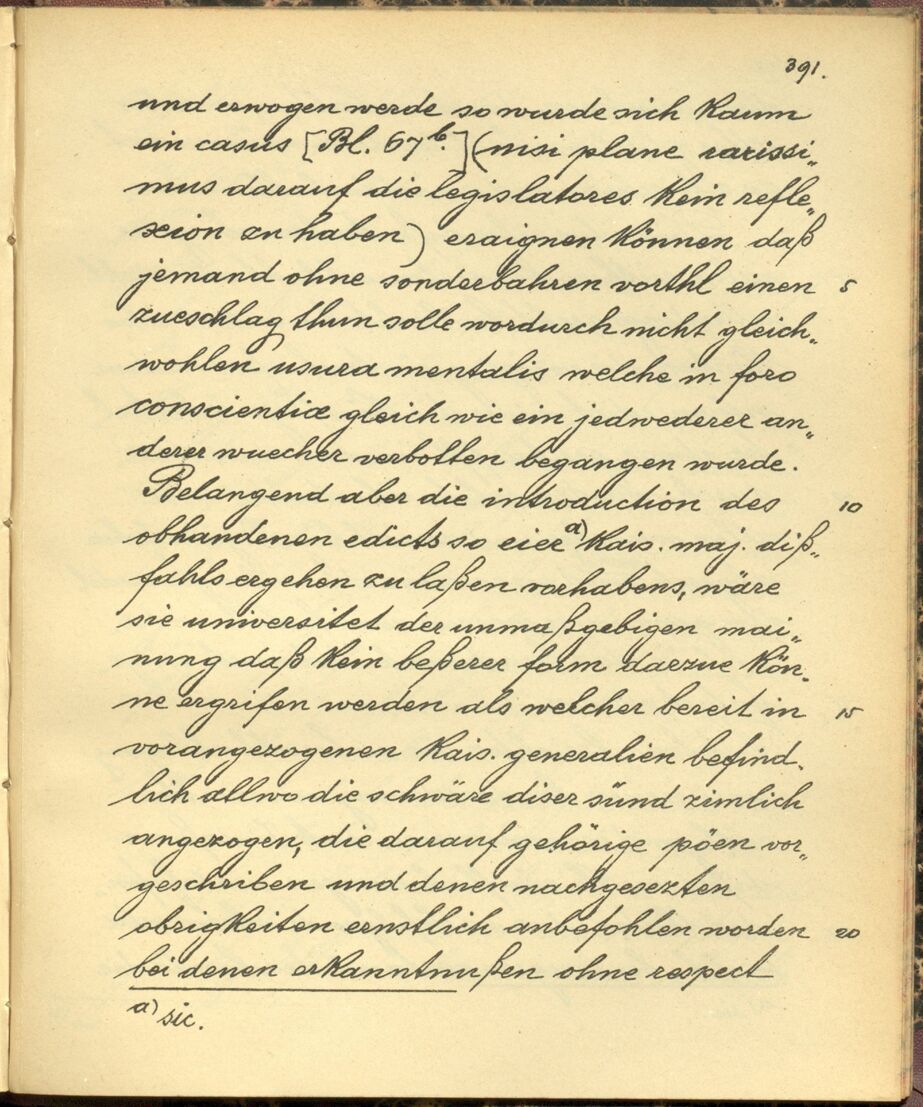 391.
und erwogen werde so wurde sich kaum
ein casus [Bl. 67b.] (nisi plane rarissi„
mus darauf die legislatores kein refle„
xion zu haben) eraignen können daß
jemand ohne sonderbahren vorthl einen 5
zueschlag thun solle wordurch nicht gleich„
wohlen usura mentalis welche in foro
conscientiæ gleich wie ein jedwederer an„
derer wuecher verbotten begangen wurde.
Belangend aber die introduction des 10
obhandenen edicts so eier a) kais. maj. diß„
fahls ergehen zu laßen vorhabens, wäre
sie universitet der unmaßgebigen mai„
nung daß kein beßerer form darzue kön„
ne ergrifen werden als welcher bereit in 15
vorangezogenen kais. generalien befind„
lich allwo die schwäre diser sünd zimlich
angezogen, die darauf gehörige pöen vor„
geschriben und denen nachgesezten
obrigkeiten ernstlich anbefohlen worden 20
bei denen erkanntnußen ohne respect
a) sic.